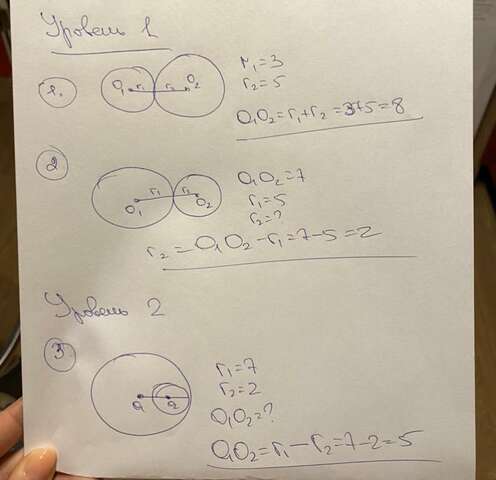 Уровень 1
1.
O₁ r₁ r₂ O₂
r₁=3
r₂=5
O₁O₂=r₁+r₂=3+5=8
2
r₁ r₂
O₁ O₂
O₁O₂=7
r₁=5
r₂=?
r₂=O₁O₂-r₁=7-5=2
Уровень 2
3
r₁=7
r₂=2
O₁O₂=?
O₁O₂=r₁-r₂=7-2=5